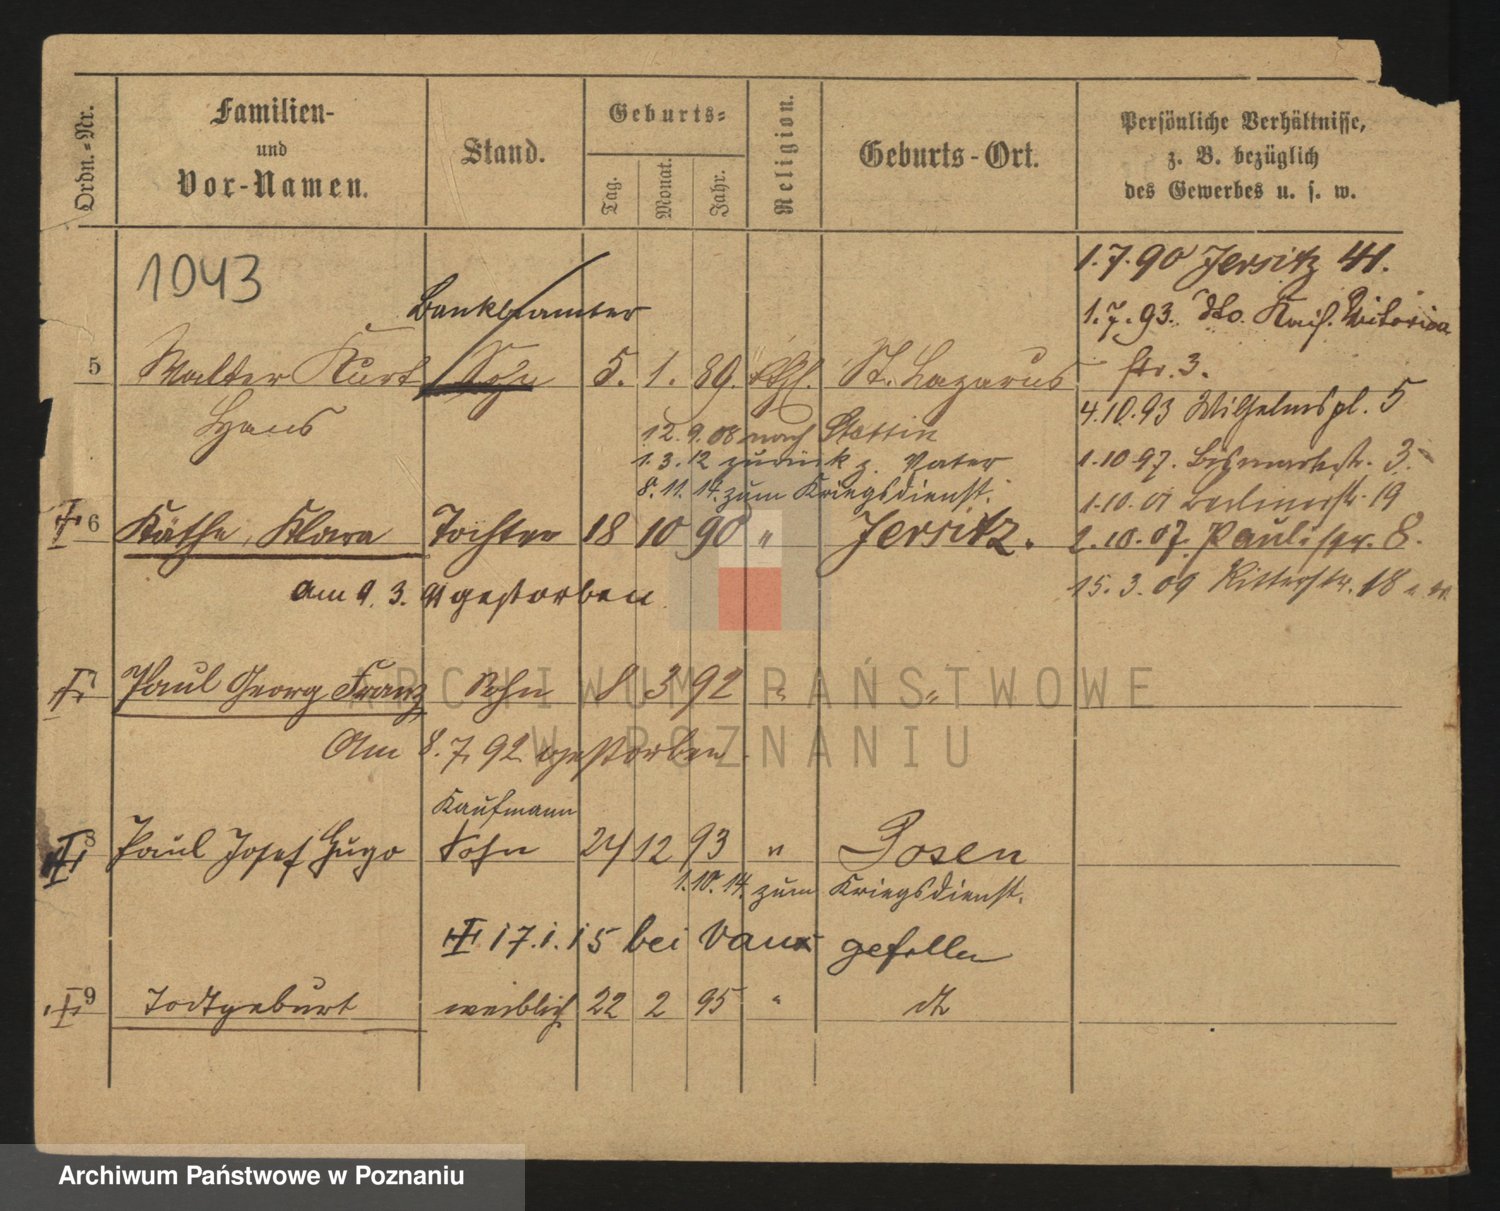 Ordn.-Nr.
Familien-
und
Vor-Namen.
Stand.
Geburts-
Tag.
Monat.
Jahr.
Religion.
Geburts-Ort.
Persönliche Verhältnisse,
z. B. bezüglich
des Gewerbes u. s. w.
1043
1.7.90 Jersitz 41.
Bankbeamter
1.7.93. dto. Kais. Viktoria
str. 3.
5 Walter Kurt Sohn 5. 1. 89. kthl. St. Lazarus
Hans
4.10.93 Wilhelmspl. 5
12.9.08 nach Stettin
1.3.12 zurück z. Vater
1.10.97. Bismarckstr. 3.
8.11.14. zum Kriegsdienst.
1.10.01 Berlinerstr. 19
6 Käthe, Klara Tochter 18 10 90 " Jersitz.
2.10.07. Paulistr. 8.
am 9. 3. 91 gestorben
15.3.09 Ritterstr. 18
7 Paul Georg Franz Sohn 8 3 92 " "
Am 8.7.92 gestorben.
ARCHIWUM PAŃSTWOWE
W POZNANIU
Kaufmann
8 Paul Josef Hugo Sohn 24 12 93 " Posen
1.10.14. zum Kriegsdienst.
17.1.15 bei Vaux gefallen
9 Todtgeburt weiblich 22 2 95 " dto
Archiwum Państwowe w Poznaniu